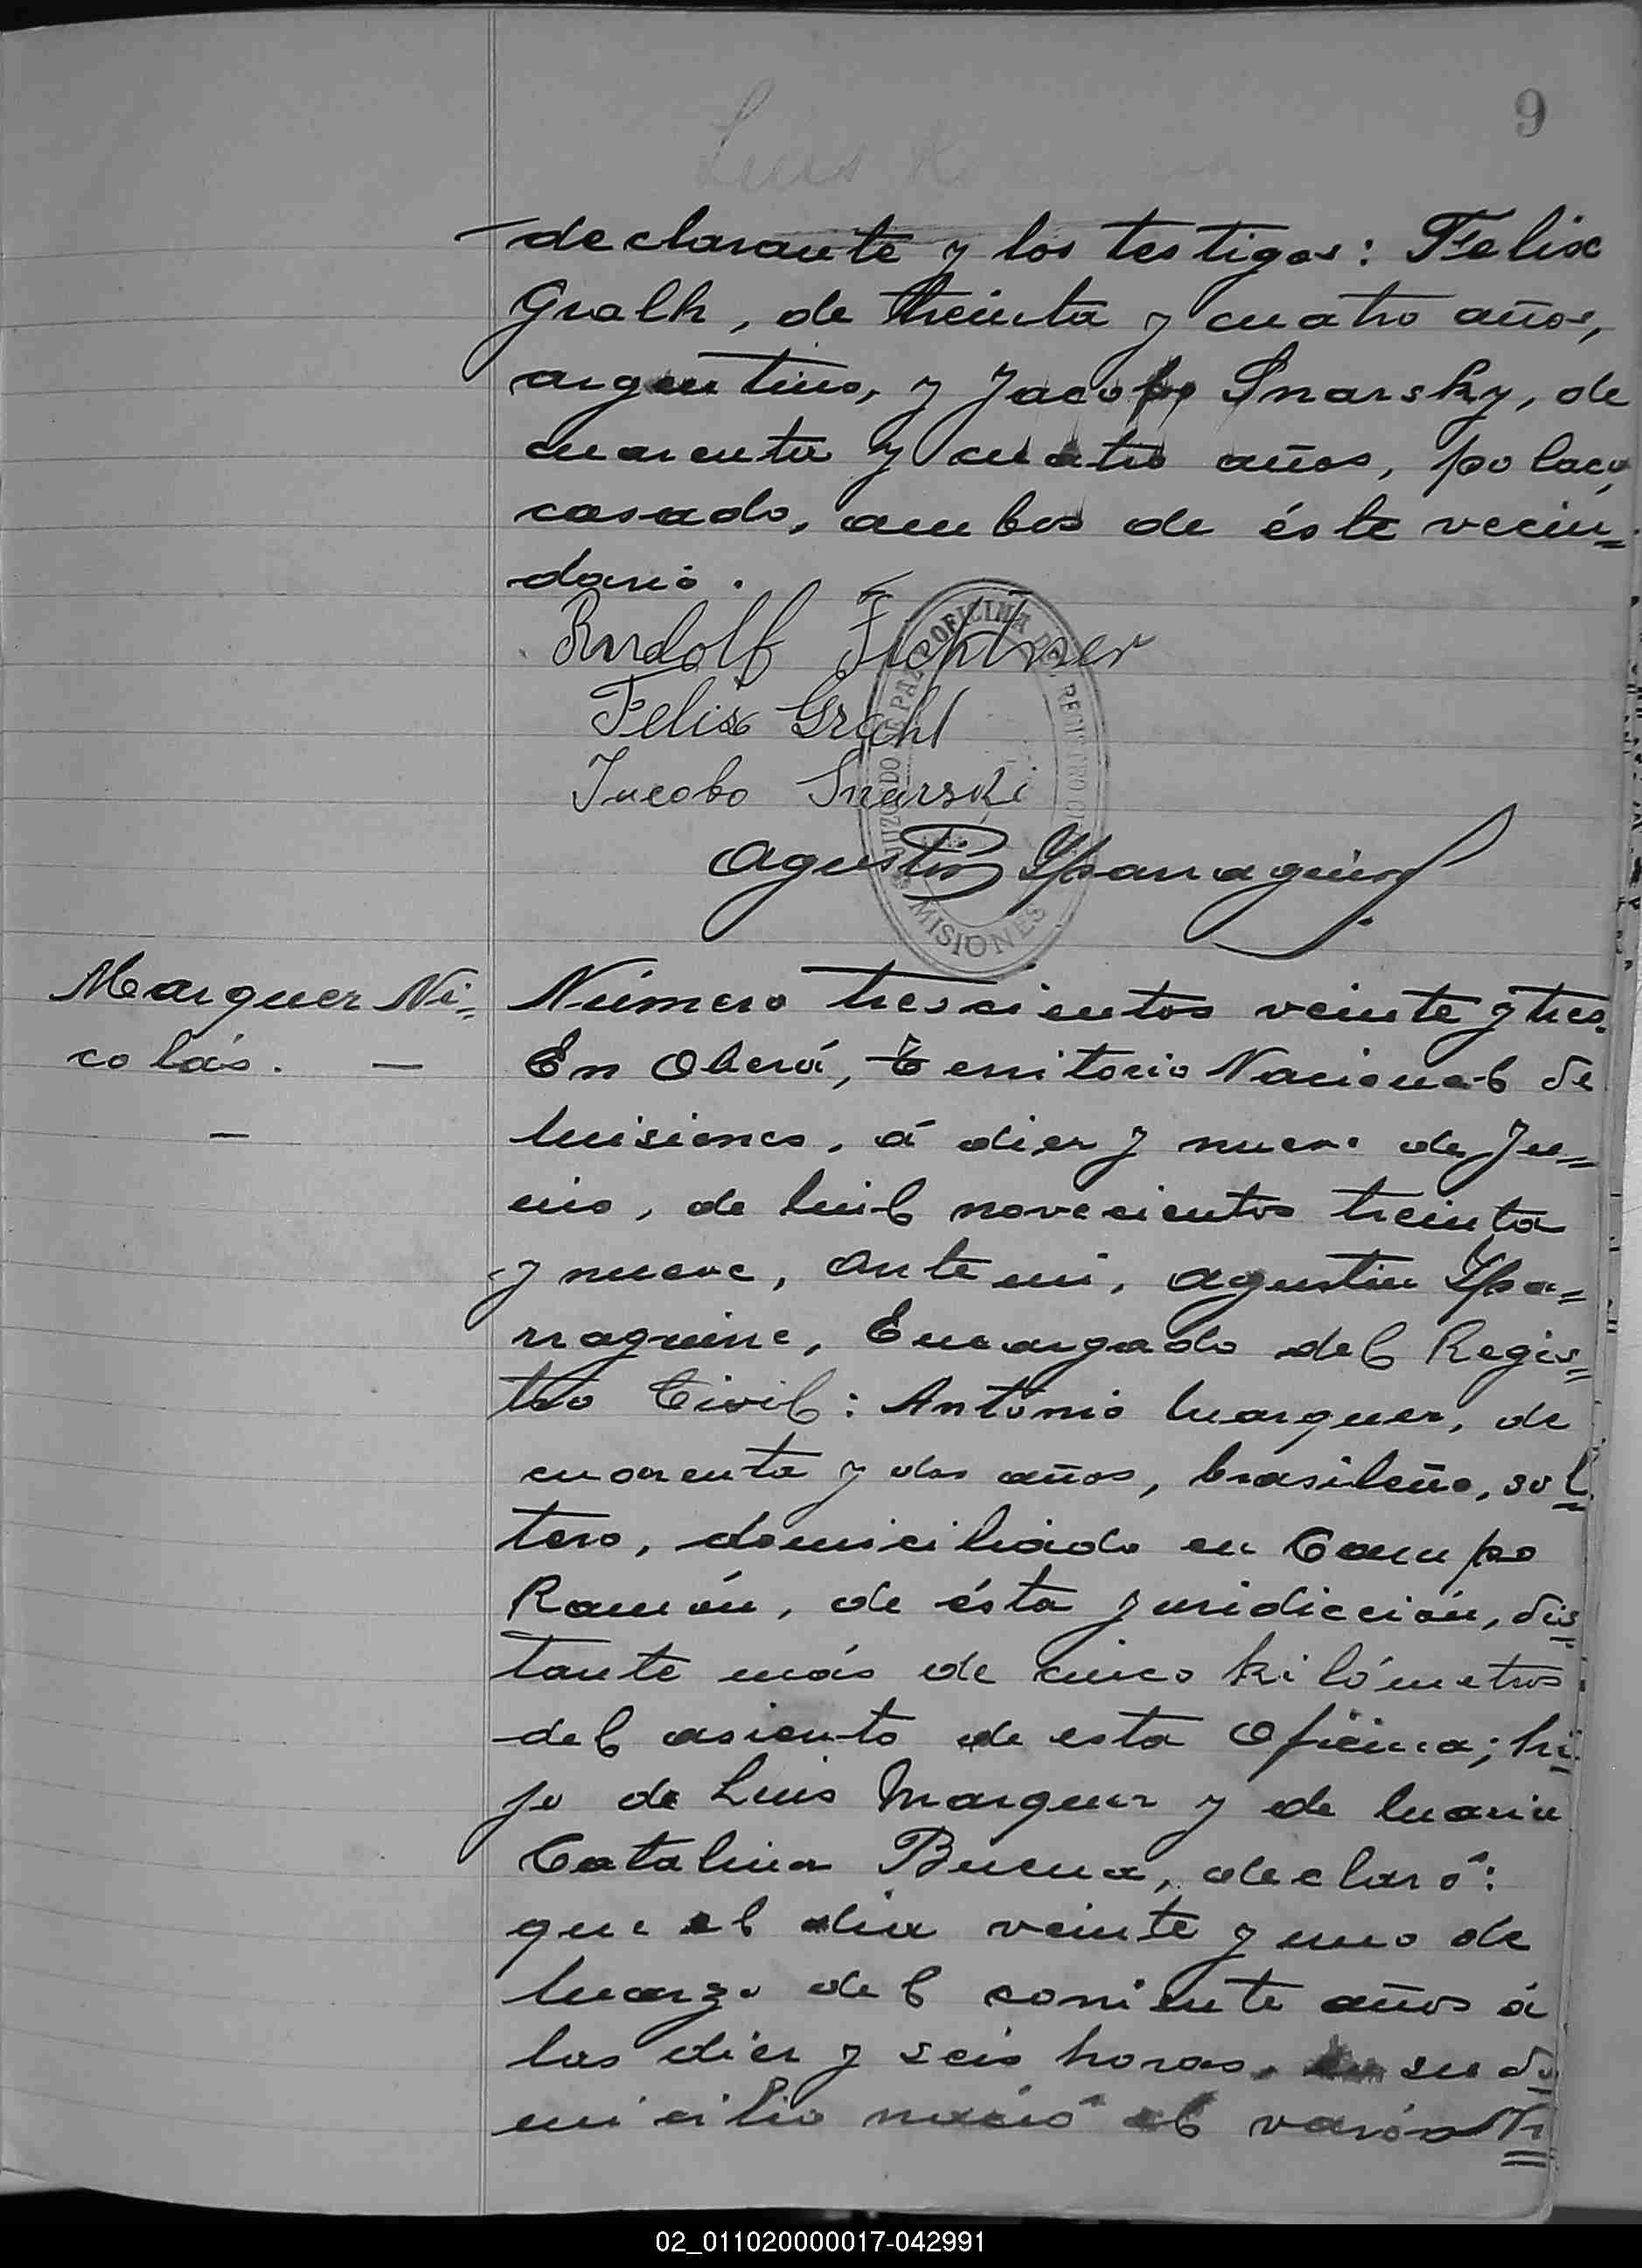 9
Luis
declarante y los testigos: Felix
Gralh, de treinta y cuatro años,
argentino, y Jacobo Snarsky, de
cuarenta y cuatro años, polaco,
casado, ambos de éste vecin=
dario.
Rudolf Fichtner
Felix Grahl
Jacobo Snarski
JUZGADO DE PAZ Y OFICINA DEL REGISTRO CIVIL
MISIONES
Agustin Yparraguirre
Marquez Ni=
colás. —
—
Número trescientos veinte y tres.
En Oberá, Territorio Nacional de
Misiones, á diez y nueve de Ju=
nio, de mil novecientos treinta
y nueve, Ante mi, Agustin Ypa=
rraguirre, Encargado del Regis=
tro Civil: António Marquez, de
cuarenta y dos años, brasileño, sol=
tero, domiciliado en Campo
Ramón, de ésta juridicción, dis=
tante más de cinco kilómetros
del asiento de esta Oficina; hi=
jo de Luis Marquez y de Maria
Catalina Buena, declaró:
que el dia veinte y uno de
Marzo del corriente años á
las diez y seis horas, en su do=
micilio nació el varón Ni=
02_011020000017-042991